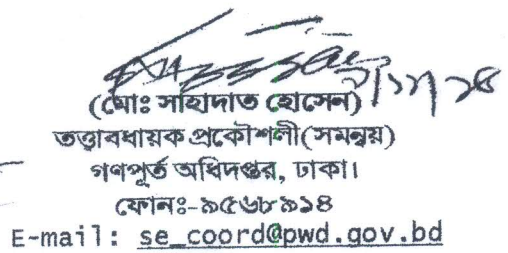 (মোঃ সাহাদাত হোসেন)
তত্ত্বাবধায়ক প্রকৌশলী(সমন্বয়)
গণপূর্ত অধিদপ্তর, ঢাকা।
ফোনঃ-৯৫৬৮৯১৪
E-mail: se_coord@pwd.gov.bd